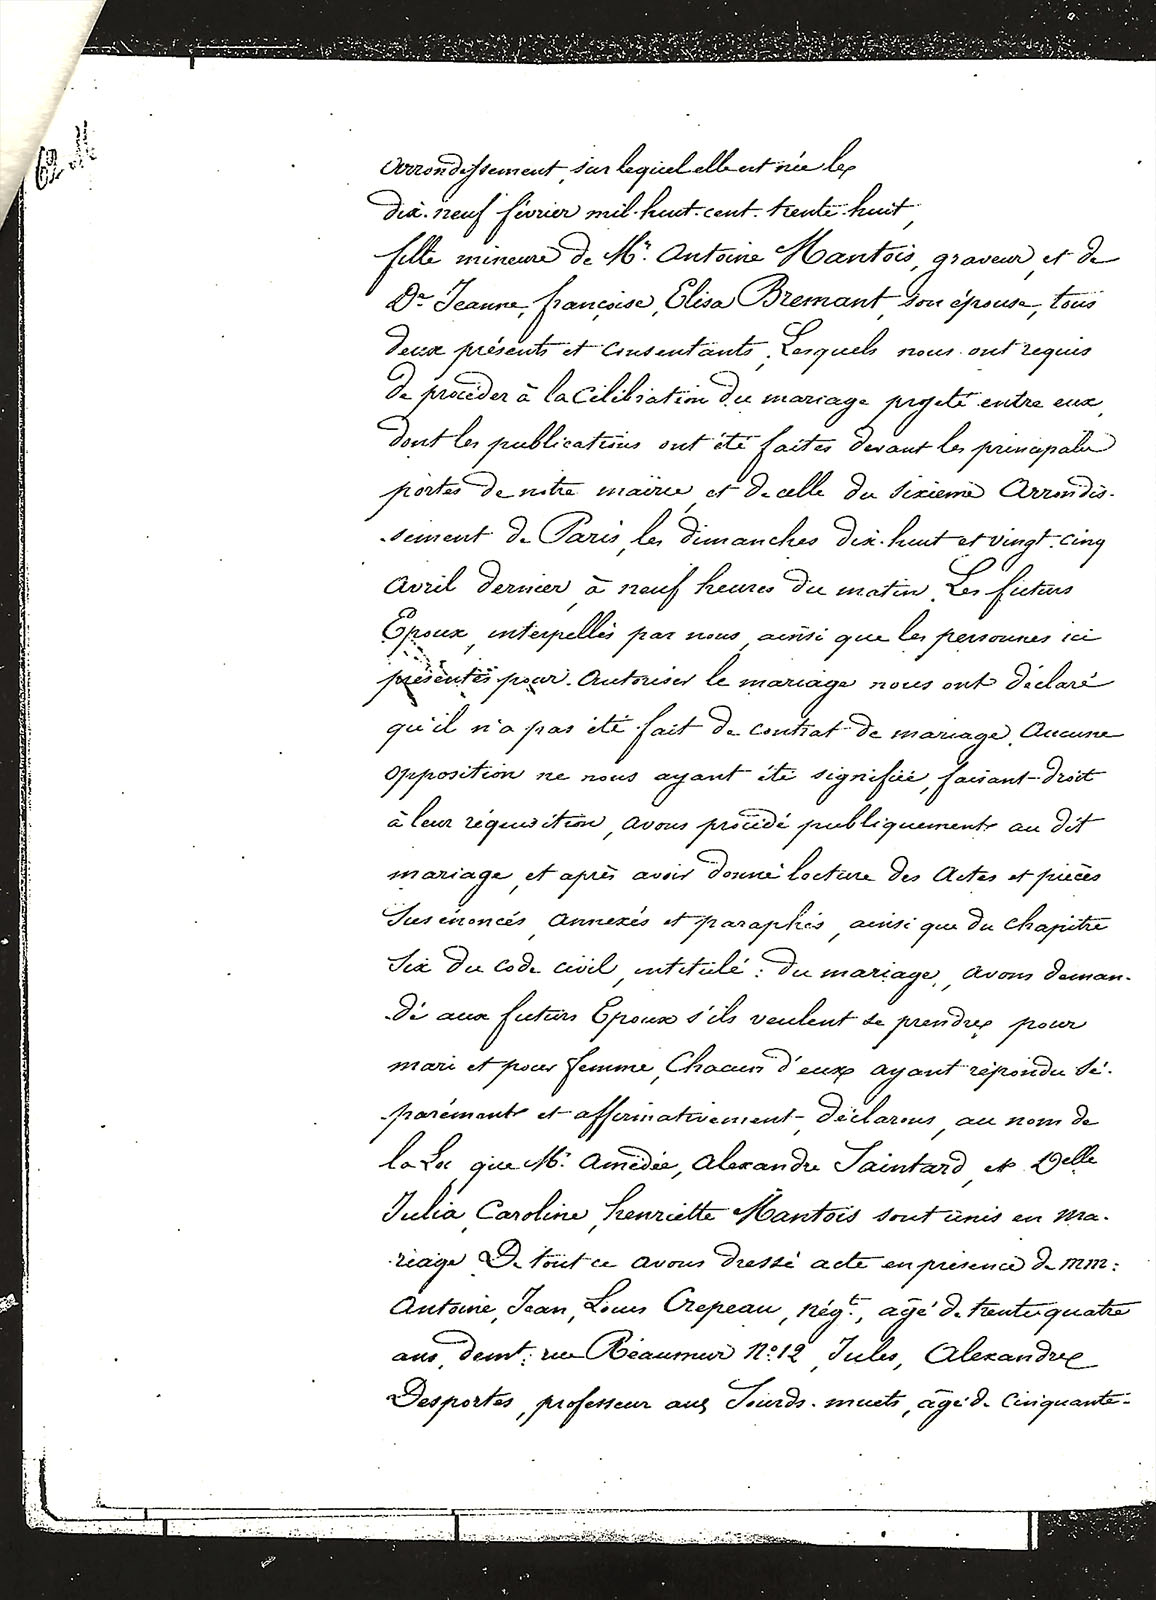 62 M
arrondissement, sur lequel elle est née le
dix-neuf février mil-huit-cent-trente-huit,
fille mineure de Mr. Antoine Mantois, graveur, et de
De Jeanne, françoise, Elisa Bremant, son épouse, tous
deux présents et consentants. Lesquels nous ont requis
de procéder à la célébration du mariage projeté entre eux,
dont les publications ont été faites devant les principales
portes de notre mairie, et de celle du sixième Arrondis-
-sement de Paris, les dimanches dix-huit et vingt-cinq
avril dernier, à neuf heures du matin. Les futurs
Epoux, interpellés par nous, ainsi que les personnes ici
présentes pour autoriser le mariage nous ont déclaré
qu'il n'a pas été fait de contrat de mariage. Aucune
opposition ne nous ayant été signifiée, faisant droit
à leur réquisition, avons procédé publiquement au dit
mariage, et après avoir donné lecture des Actes et pièces
Sus énoncés, annexés et paraphés, ainsi que du chapitre
Six du code civil, intitulé : du mariage, avons deman-
-dé aux futurs Epoux s'ils veulent se prendre pour
mari et pour femme, Chacun d'eux ayant répondu sé-
-parément et affirmativement, déclarons, au nom de
la Loi, que Mr. Amédée, Alexandre Saintard, et Delle
Julia, Caroline, henriette Mantois sont unis en ma-
-riage. De tout ce avons dressé acte en présence de mm:
Antoine, Jean, Louis Crepeau, négt., âgé de trente quatre
ans, demt. rue Réaumur No. 12, Jules, Alexandre
Desportes, professeur aux Sourds-muets, âgé de cinquante-